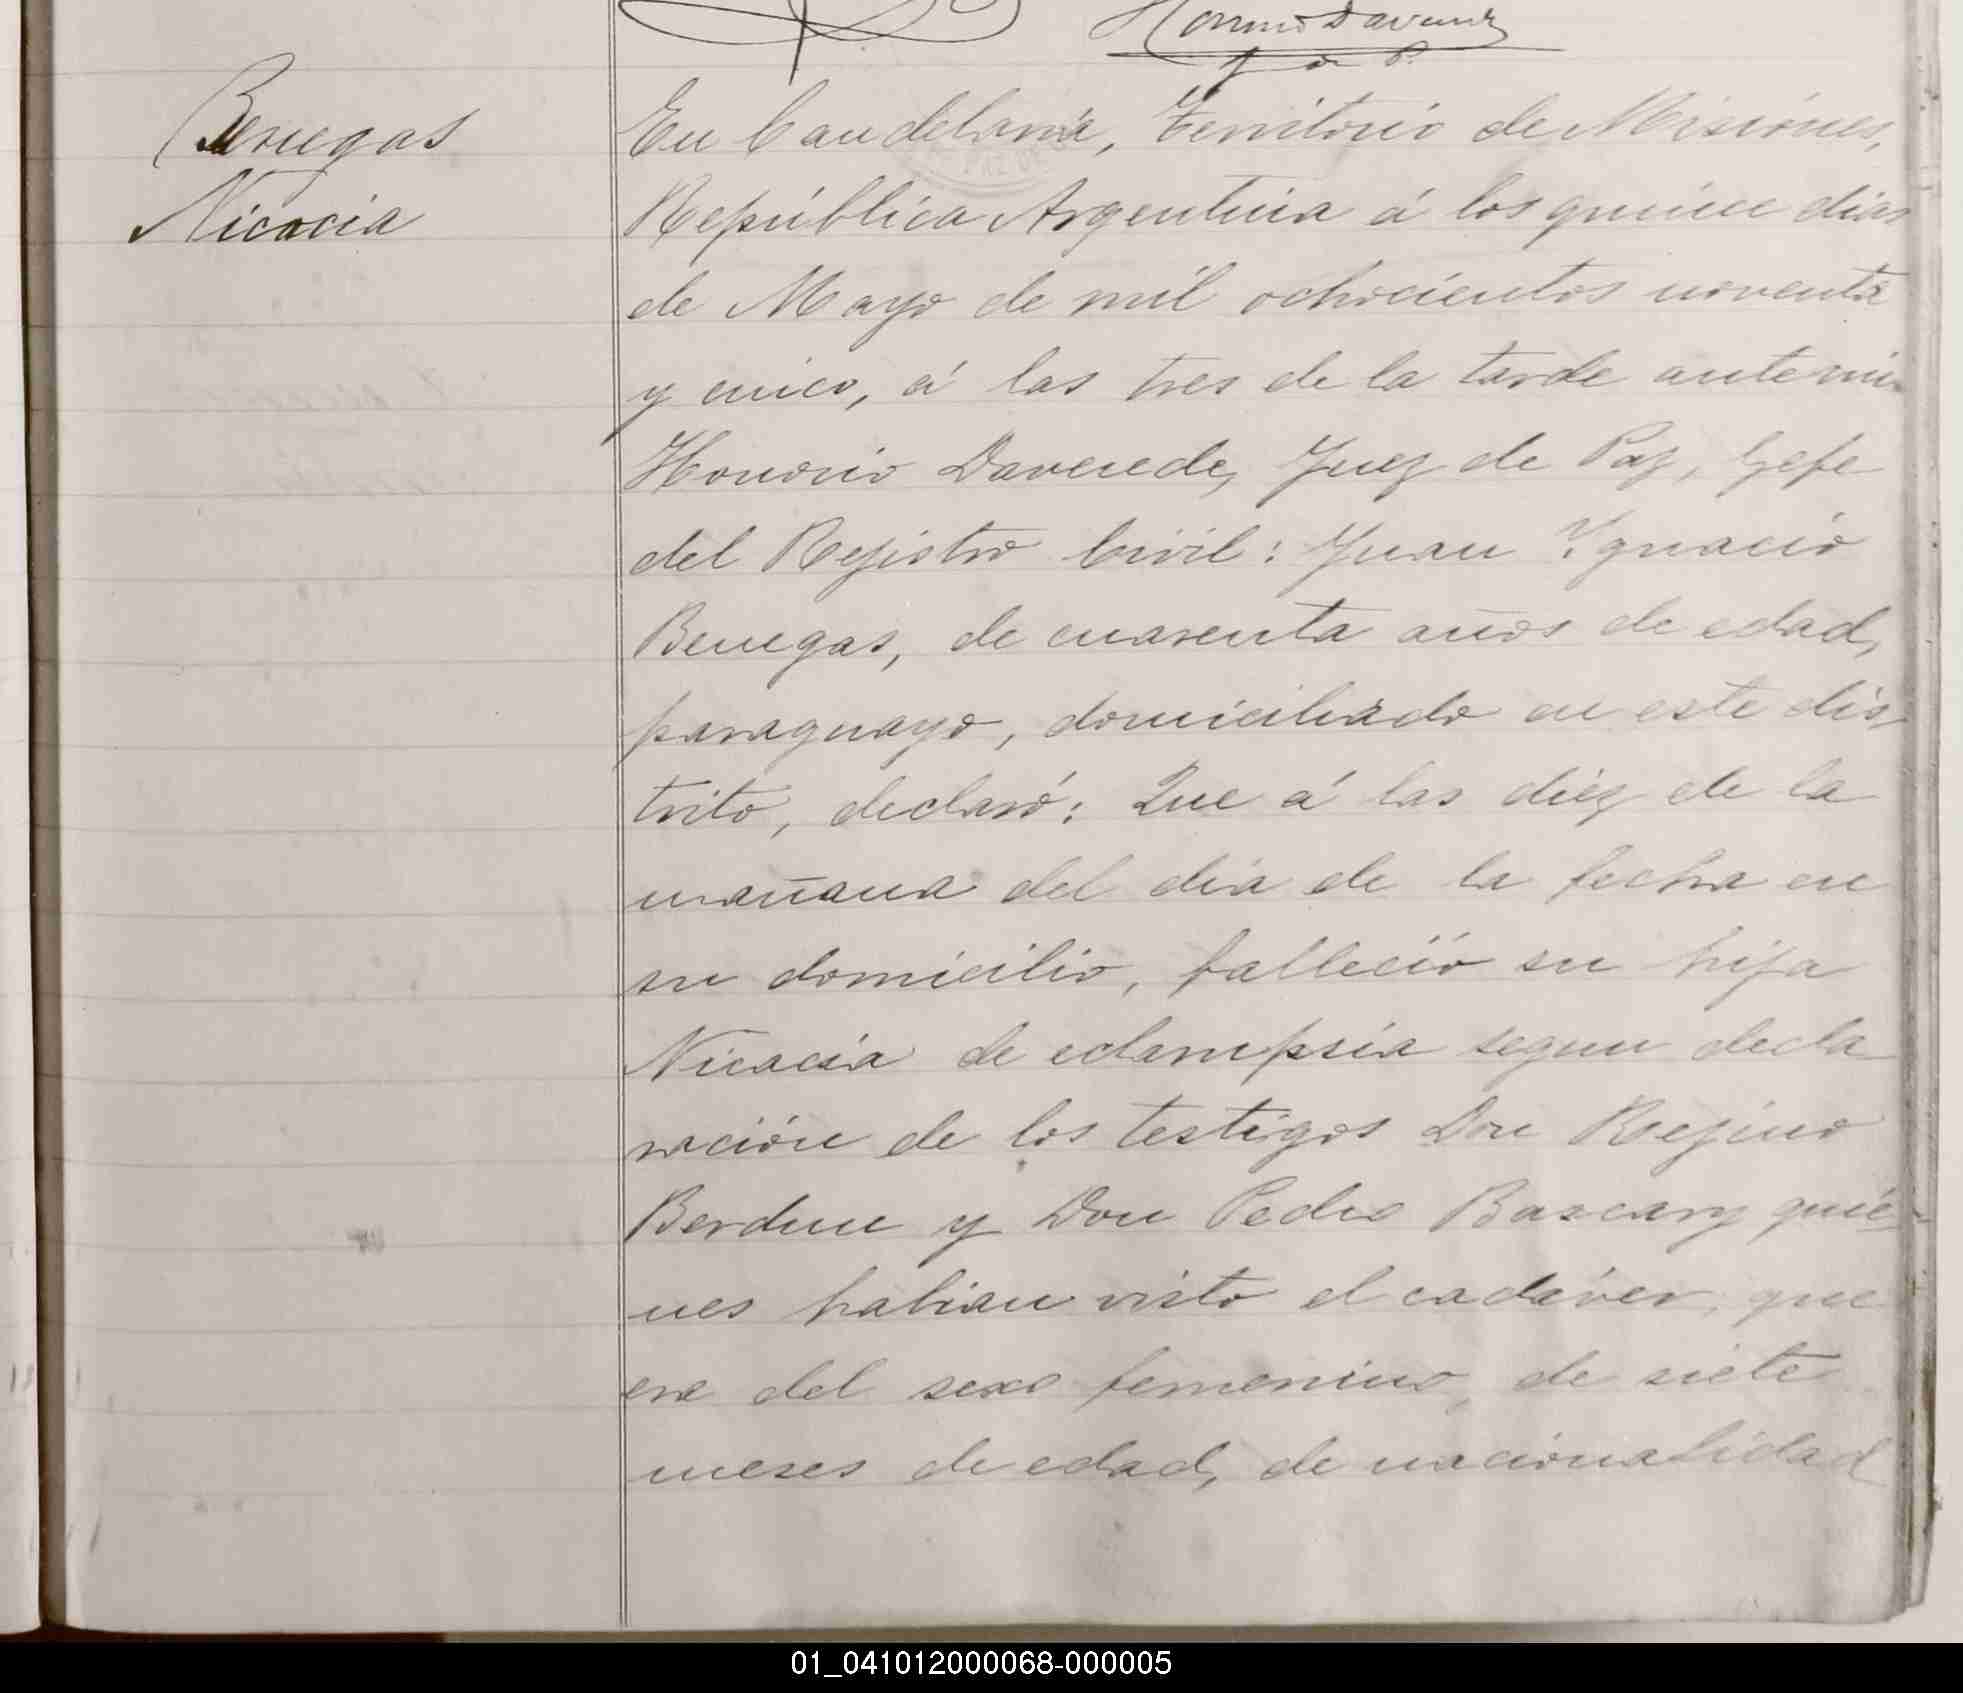 Honorio Daverede
J de P.
Benegas
Nicacia
En Candelaria, Territorio de Misiones,
República Argentina á los quince dias
de Mayo de mil ochocientos noventa
y cinco, á las tres de la tarde ante mi
Honorio Daverede, Juez de Paz, Gefe
del Rejistro Civil: Juan Ygnacio
Benegas, de cuarenta años de edad,
paraguayo, domiciliado en este dis
trito, declaró: Que á las diez de la
mañana del dia de la fecha en
su domicilio, falleció su hija
Nicacia de eclampsia segun decla
ración de los testigos Don Rejino
Berdun y Don Pedro Bascary quié-
nes habian visto el cadáver, que
era del sexo femenino, de siete
meses de edad, de nacionalidad
01_041012000068-000005